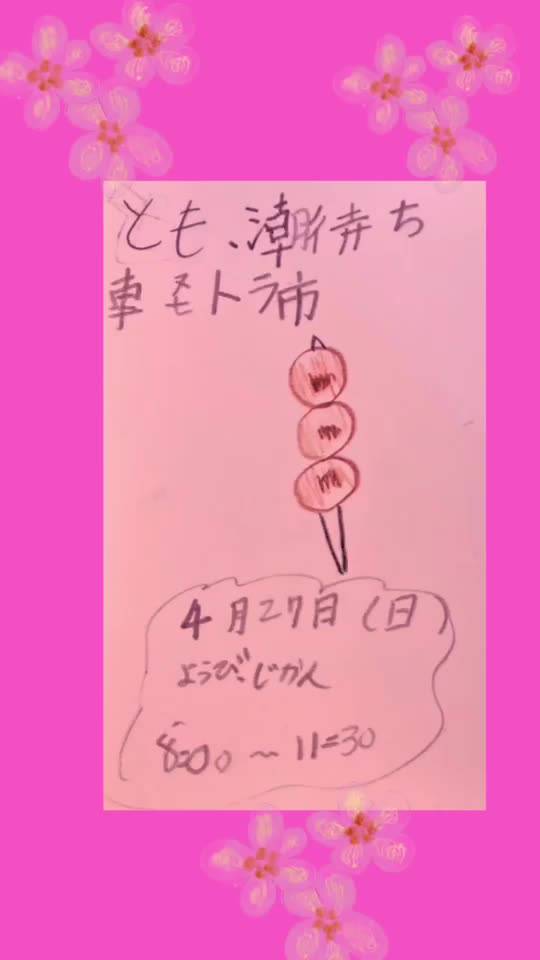 とも、潮待ち
軽トラ市
4月27日(日)
ようび.じかん
8:00〜11:30